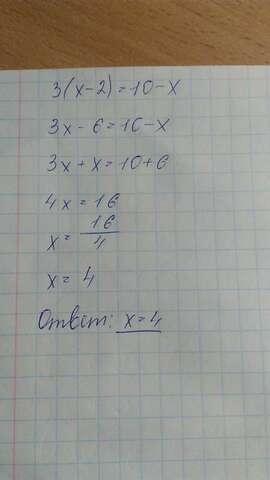 3(x-2)=10-x
3x-6=10-x
3x+x=10+6
4x=16
x=16/4
x=4
Ответ: x=4